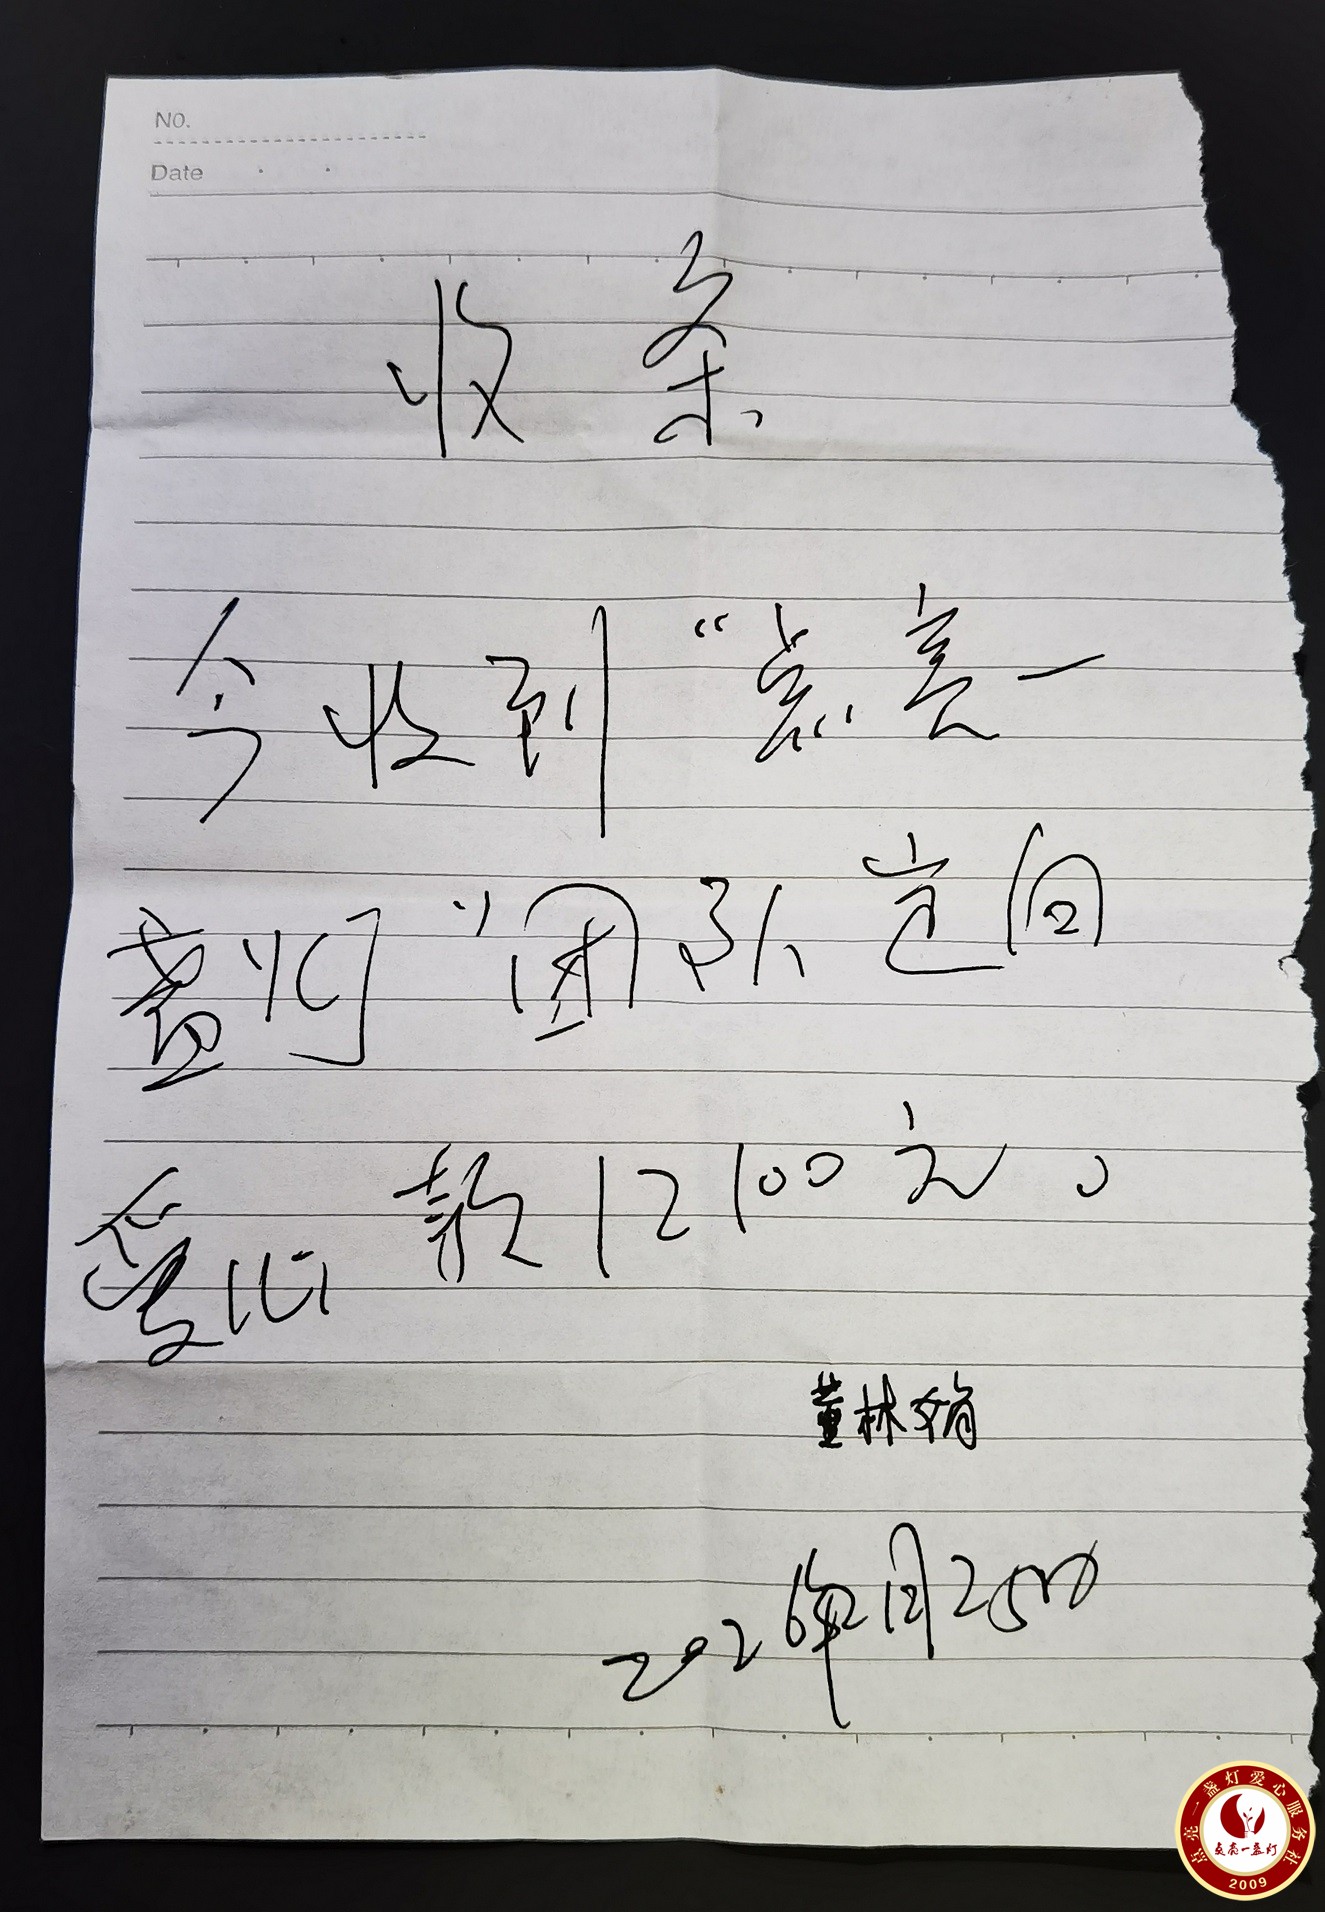 NO.
Date
收条
今收到“点亮一
盏灯”团队定向
爱心款12100元。
董林娟
2026年1月25日
点亮一盏灯爱心服务社
点亮一盏灯
2009